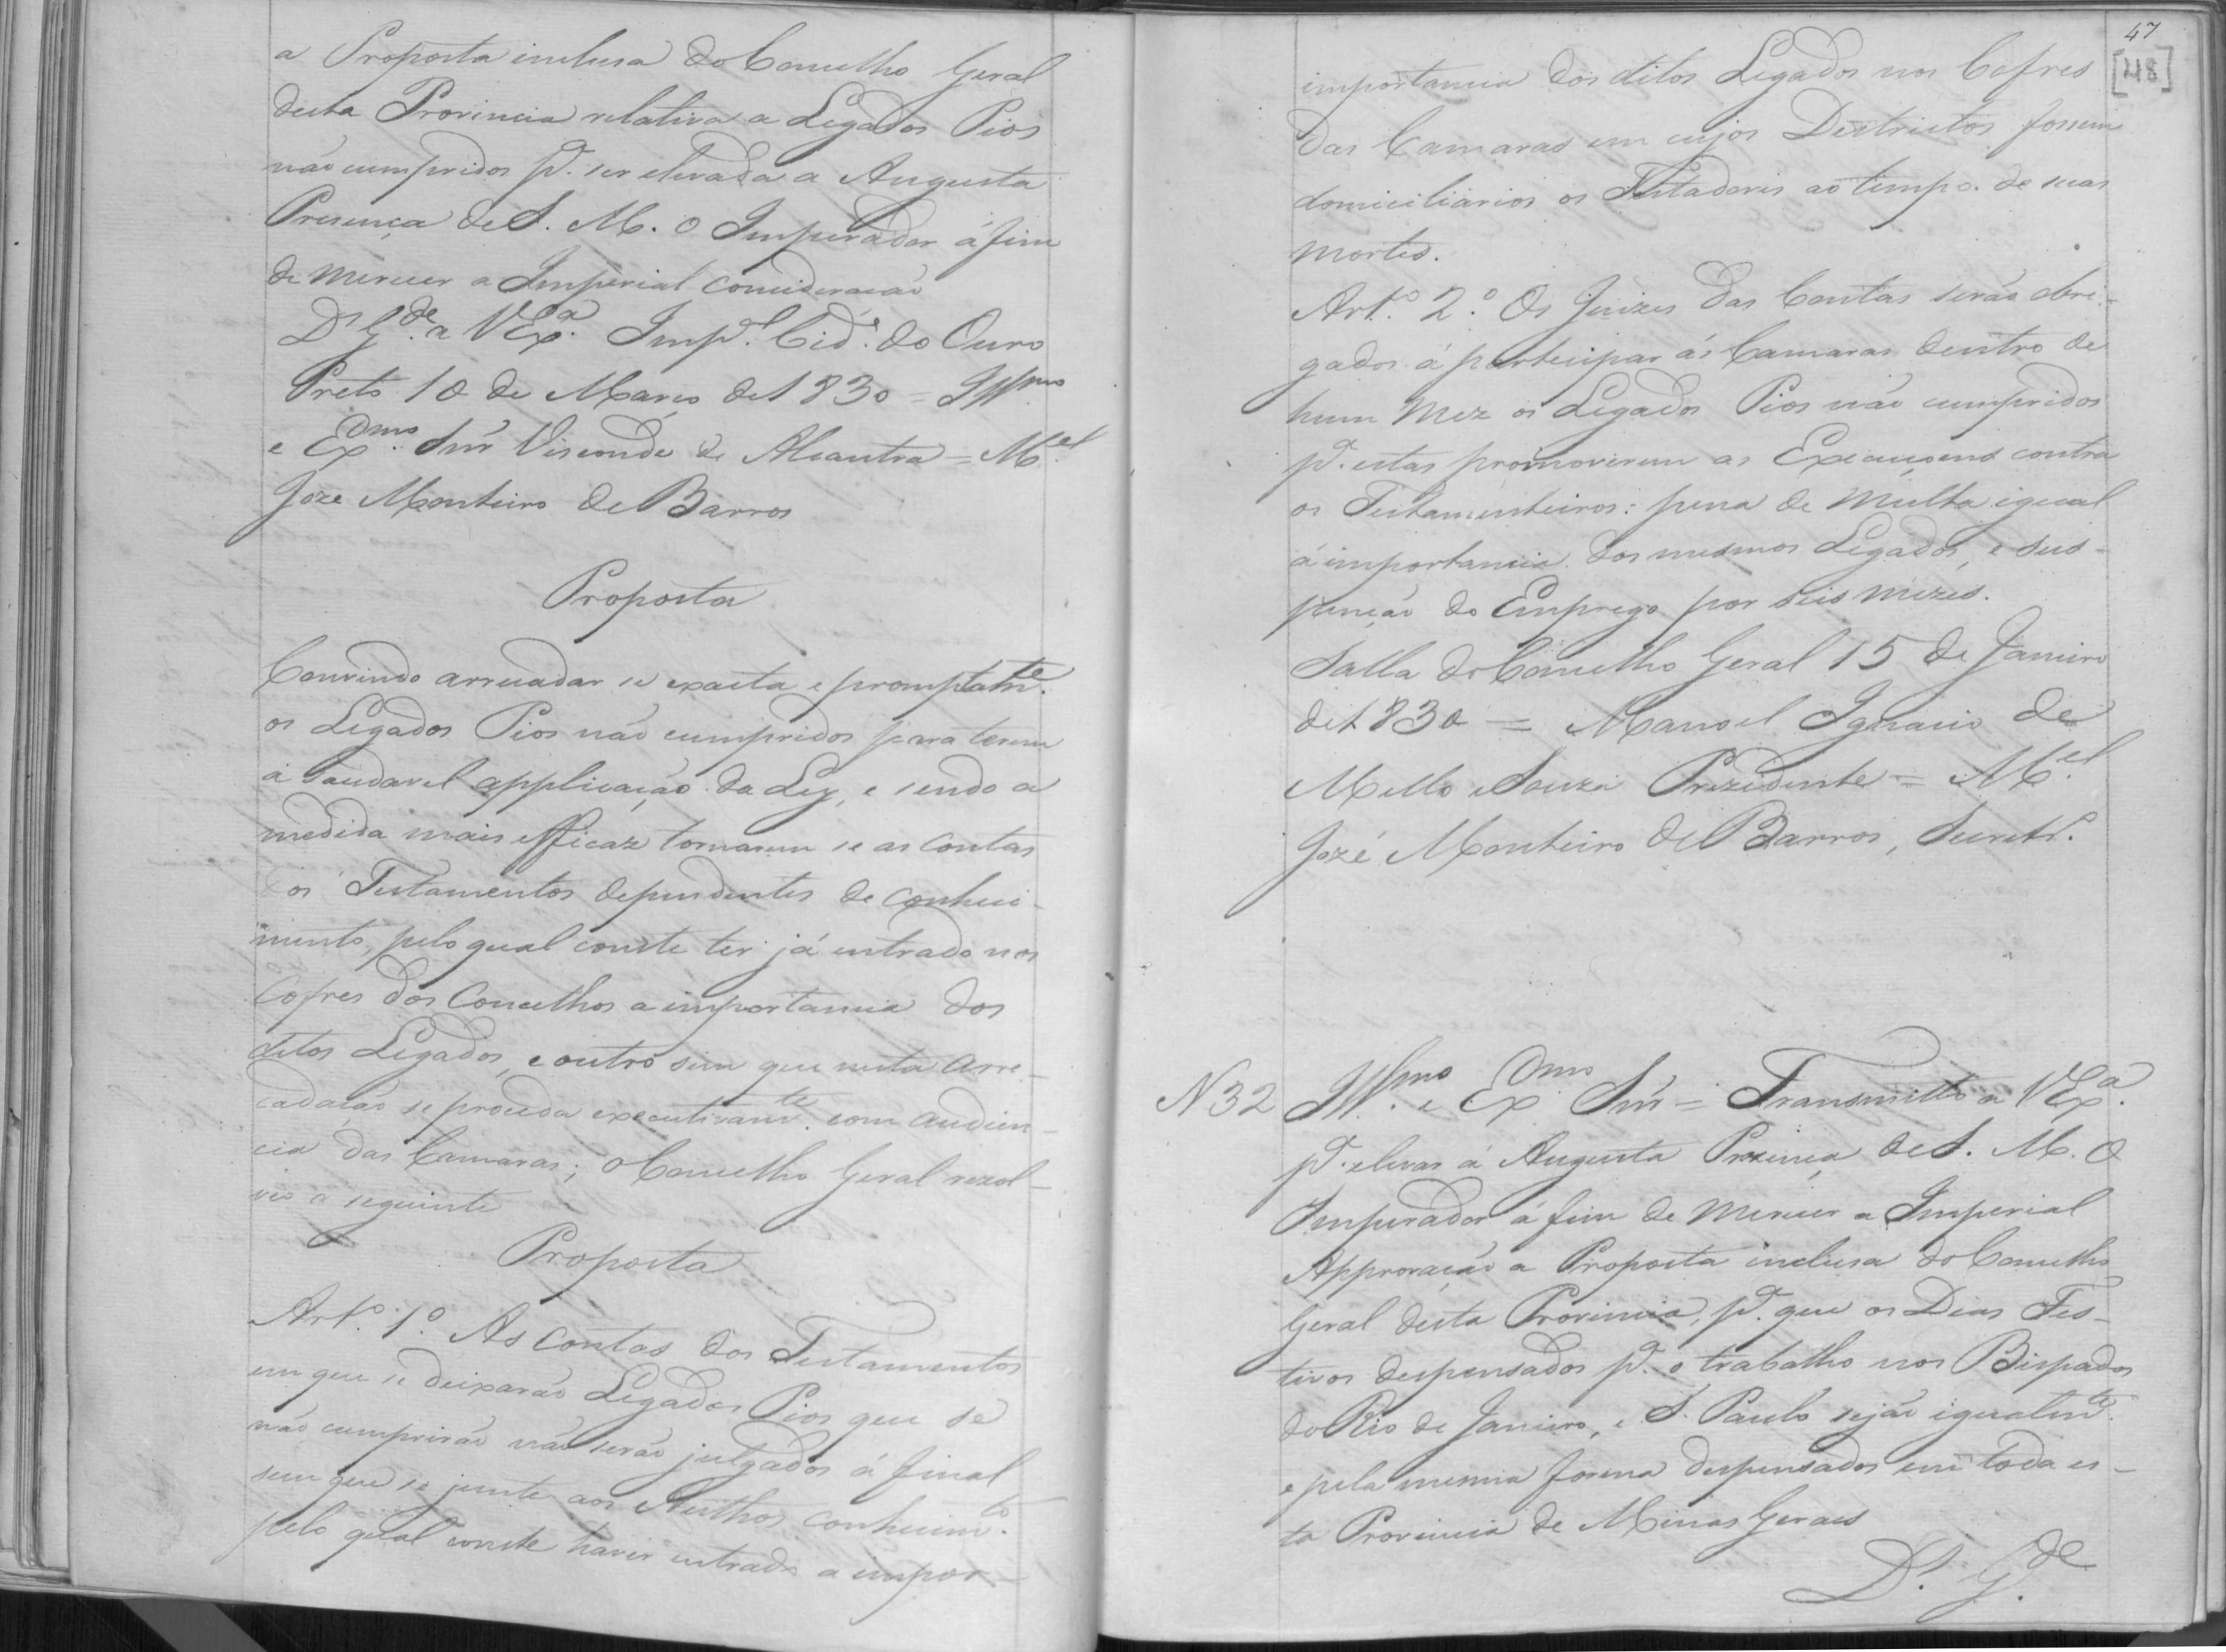 a Proposta inclusa do Conselho Geral
desta Provincia relativa a Legados Pios
não cumpridos pª. ser elevada a Augusta
Presença de S. M. O Imperador á fim
de merecer a Imperial consideração
Ds. Gde. a VExª. Impl. Cide. do Ouro
Preto 10 de Março de 1830 = Illmo.
e Exmo. Snr Visconde de Alcantra = Mel.
Joze Monteiro de Barros
Proposta
Convindo arrecadar se exacta e promptamte.
os Legados Pios não cumpridos para terem
a saudavel applicação da Ley, e sendo a
medida mais efficaz tornarem se as contas
dos Testamentos dependentes de conheci-
mento, pelo qual conste ter já entrado nos
Cofres dos Concelhos a importancia dos
ditos Legados, e outro sim que nesta arre-
cadação se proceda executivamte. com audien-
cia das Camaras; O Conselho Geral rezol-
veo a seguinte
Proposta
Artº. 1º. As contas dos Testamentos
em que se deixarão Legados Pios que se
não cumprirão não serão julgados á final
sem que se junte aos Authos conhecimto.
pelo qual conste haver entrado a impor-
47
[48]
importancia dos ditos Legados nos Cofres
das Camaras em cujos Destrictos fossem
domiciliarios os Testadores ao tempo de suas
mortes.
Artº. 2º. Os Juizes das Contas serão obri-
gados á partecipar ás Camaras dentro de
hum mez os Legados Pios não cumpridos
pª. estas promoverem as Execuçoens contra
os Testamenteiros: pena de multa igual
á importancia dos mesmos Legados, e sus-
penção do Emprego por seis mezes.
Salla do Conselho Geral 15 de Janeiro
de 1830 = Manoel Ignacio de
Mello e Souza Prezidente = Mel.
Jozé Monteiro de Barros, Secretº.
N 32 Illmo. e Exmo. Snr = Transmitto a VExª.
pª. elevar á Augusta Prezença de S. M. O
Imperador á fim de merecer a Imperial
Approvação a Proposta inclusa do Conselho
Geral desta Provincia, pª. que os Dias Fes-
tivos despensados pª. o trabalho nos Bispados
do Rio de Janeiro, e S. Paulo sejão igualmte.
e pela mesma forma despensados em toda es-
ta Provincia de Minas Geraes
Ds. Gde.